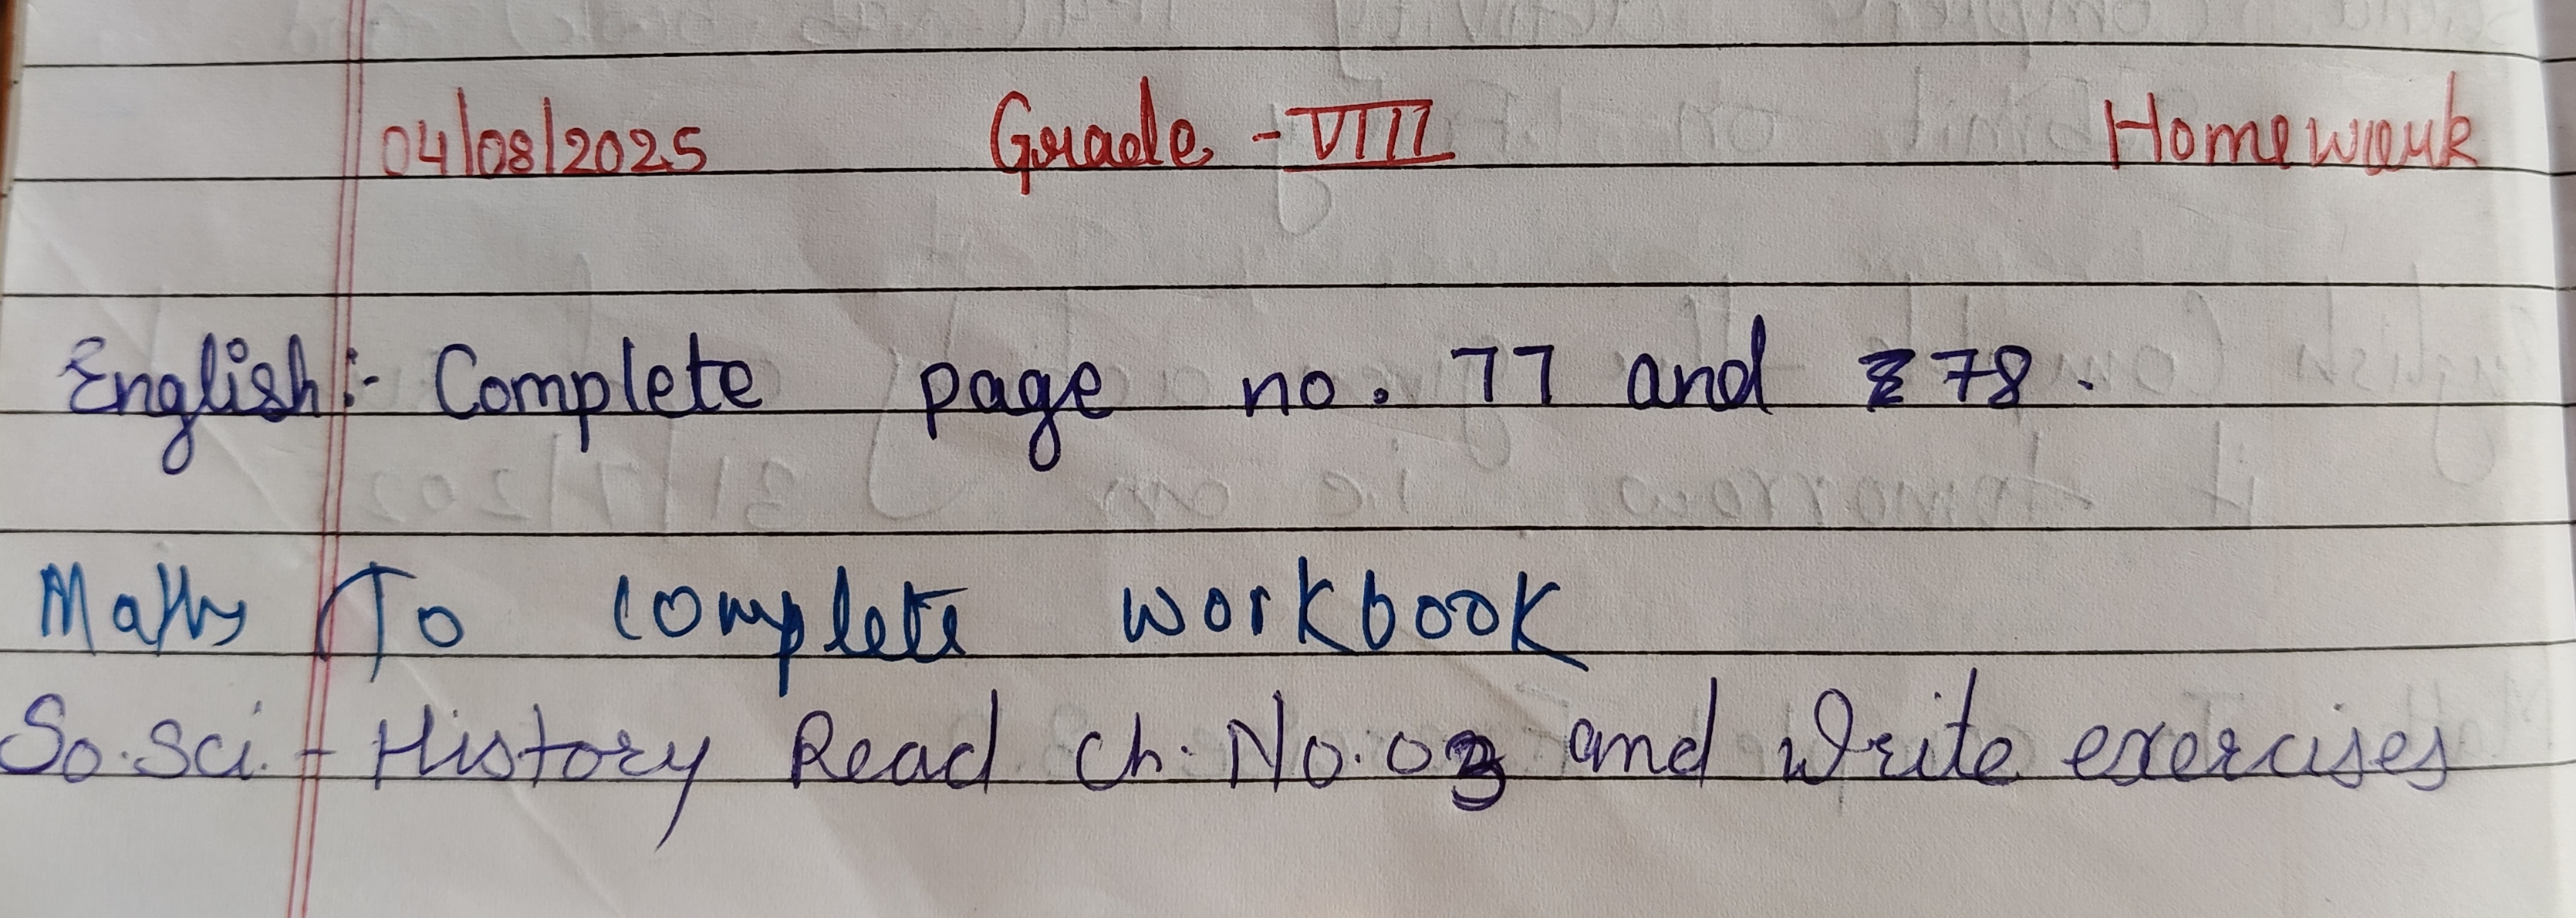 04/08/2025 Grade - VIII Homework
English:- Complete page no. 77 and 78.
Maths To complete workbook
So.Sci. - History Read Ch. No. 03 and Write exercises